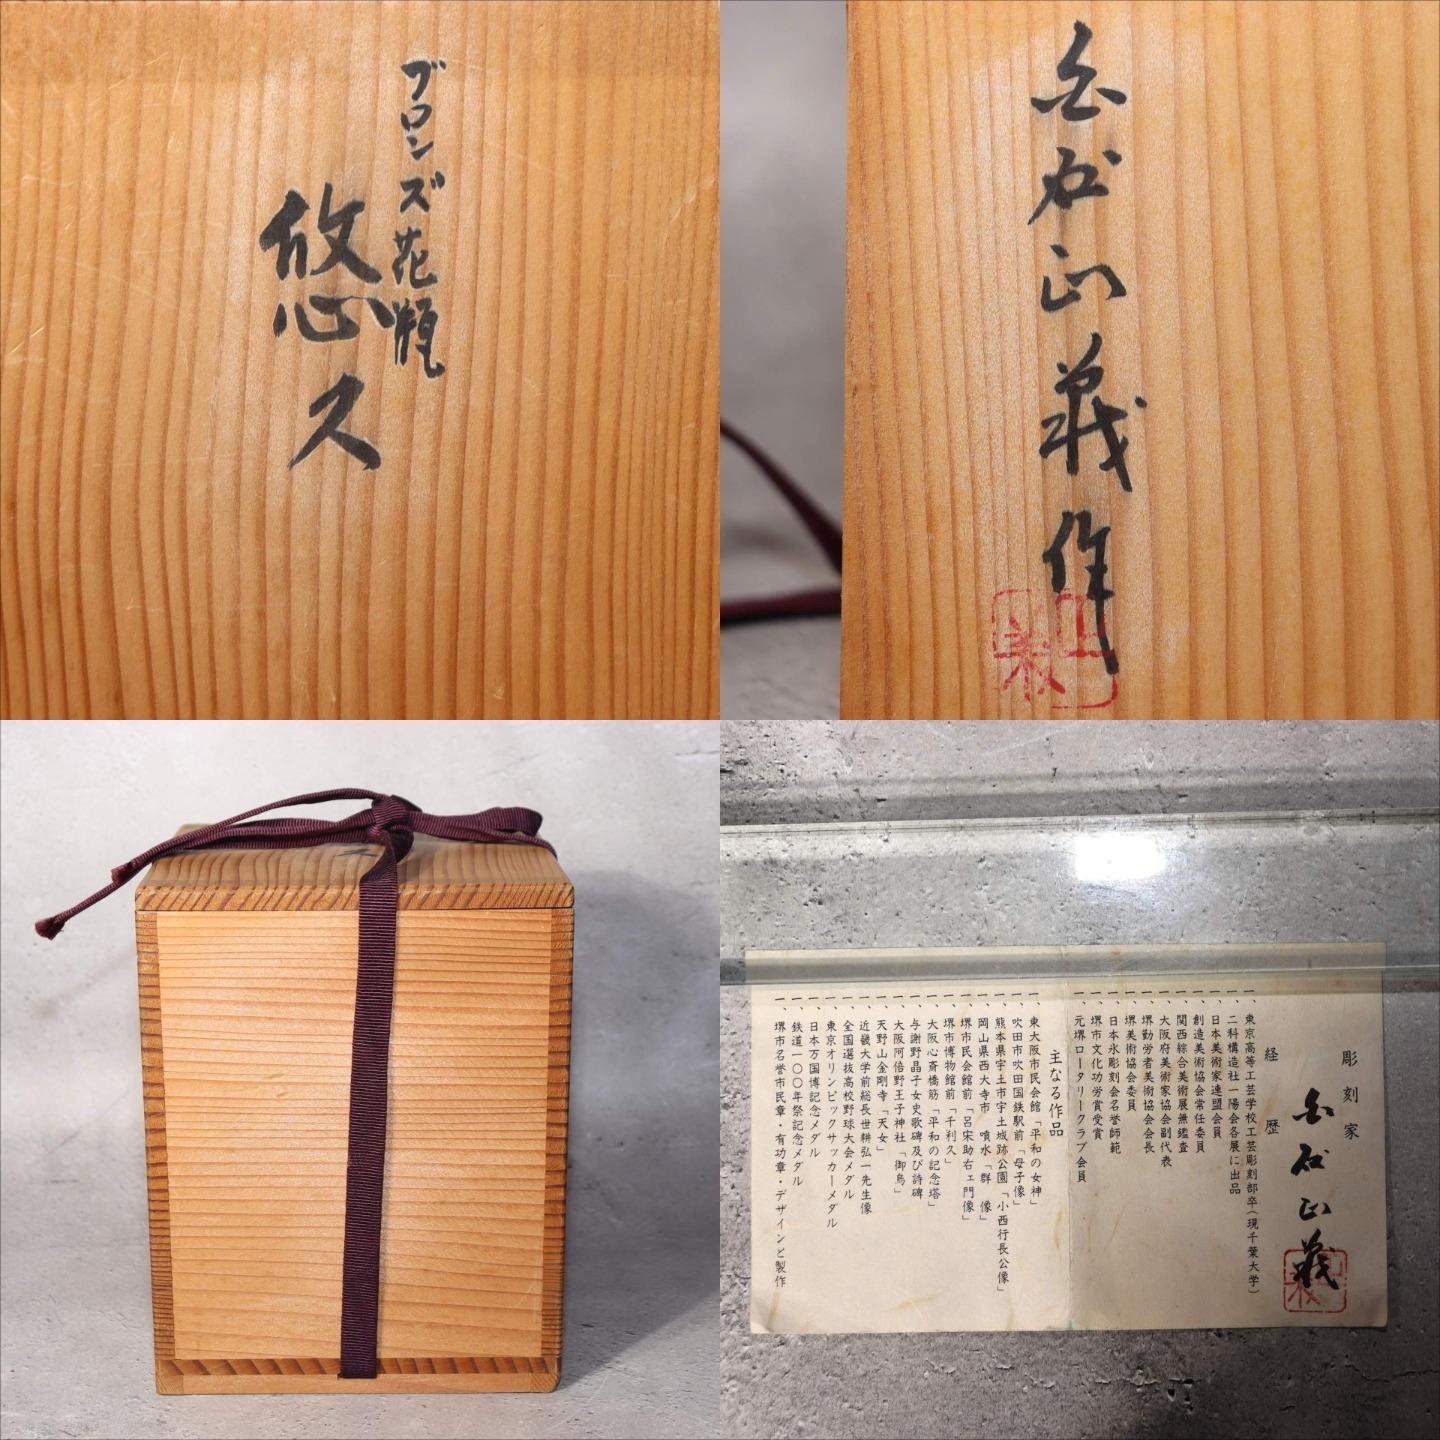 ブロンズ花瓶
悠久
白石正義作
彫刻家
白石正義
経歴
一、東京高等工芸学校工芸彫刻部卒(現千葉大学)
一、二科構造社一陽会各展に出品
一、日本美術家連盟会員
一、創造美術協会常任委員
一、関西綜合美術展無鑑査
一、大阪府美術家協会副代表
一、堺勤労者美術協会会長
一、堺美術協会委員
一、日本氷彫刻会名誉師範
一、堺市文化功労賞受賞
一、元堺ロータリークラブ会員
主なる作品
一、東大阪市民会館「平和の女神」
一、吹田市吹田国鉄駅前「母子像」
一、熊本県宇土市宇土城跡公園「小西行長公像」
一、岡山県西大寺市 噴水「群像」
一、堺市民会館前「呂宋助右ェ門像」
一、堺市博物館前「千利久」
一、大阪心斎橋筋「平和の記念塔」
一、与謝野晶子女史歌碑及び詩碑
一、大阪阿倍野王子神社「御烏」
一、天野山金剛寺「天女」
一、近畿大学前総長世耕弘一先生像
一、全国選抜高校野球大会メダル
一、東京オリンピックサッカーメダル
一、日本万国博記念メダル
一、鉄道一〇〇年祭記念メダル
一、堺市名誉市民章・有功章・デザインと製作